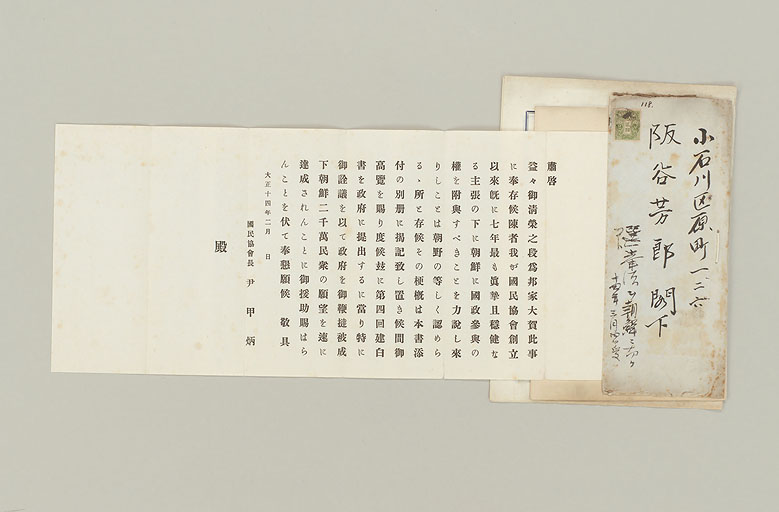 118.
小石川区原町一二六
阪谷芳郎閣下
肅啓
益々御清榮之段爲邦家大賀此事
に奉存候陳者我が國民協會創立
以來既に七年最も眞摯且穩健な
る主張の下に朝鮮に國政參與の
權を附與すべきことを力說し來
りしことは朝野の等しく認めら
るゝ所と存候その梗槪は本書添
付の別册に揭記致し置き候間御
高覽を賜り度候玆に第四回建白
書を政府に提出するに當り特に
御詮議を以て政府を御鞭撻被成
下朝鮮二千萬民衆の願望を速に
達成されんことに御援助賜はら
んことを伏て奉懇願候 敬具
大正十四年二月 日
國民協會長 尹甲炳
殿